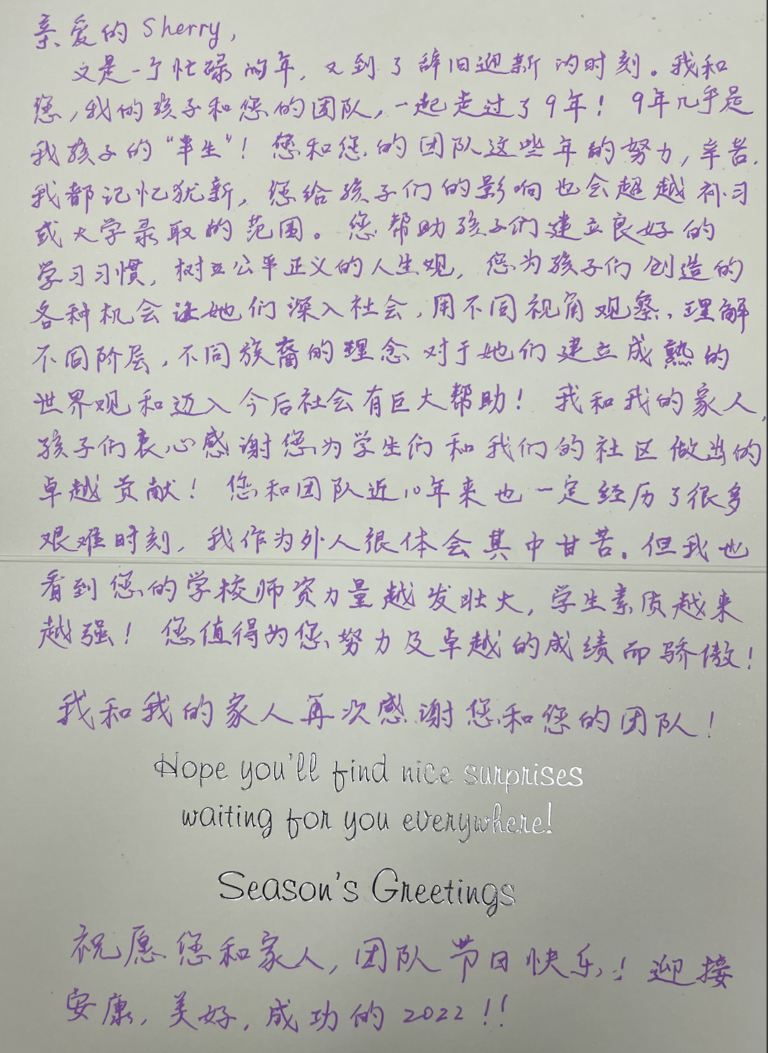 亲爱的 Sherry,
又是一个忙碌的年, 又到了辞旧迎新的时刻。我和
您, 我的孩子和您的团队, 一起走过了9年! 9年几乎是
我孩子的“半生”! 您和您的团队这些年的努力, 辛苦,
我都记忆犹新, 您给孩子们的影响也会超越补习
或大学录取的范围。您帮助孩子们建立良好的
学习习惯, 树立公平正义的人生观, 您为孩子们创造的
各种机会让她们深入社会, 用不同视角观察、理解
不同阶层, 不同族裔的理念对于她们建立成熟的
世界观和迈入今后社会有巨大帮助! 我和我的家人,
孩子们衷心感谢您为学生们和我们的社区做出的
卓越贡献! 您和团队近10年来也一定经历了很多
艰难时刻, 我作为外人很体会其中甘苦。但我也
看到您的学校师资力量越发壮大, 学生素质越来
越强! 您值得为您努力及卓越的成绩而骄傲!
我和我的家人再次感谢您和您的团队!
Hope you'll find nice surprises
waiting for you everywhere!
Season's Greetings
祝愿您和家人, 团队节日快乐! 迎接
安康, 美好, 成功的 2022!!